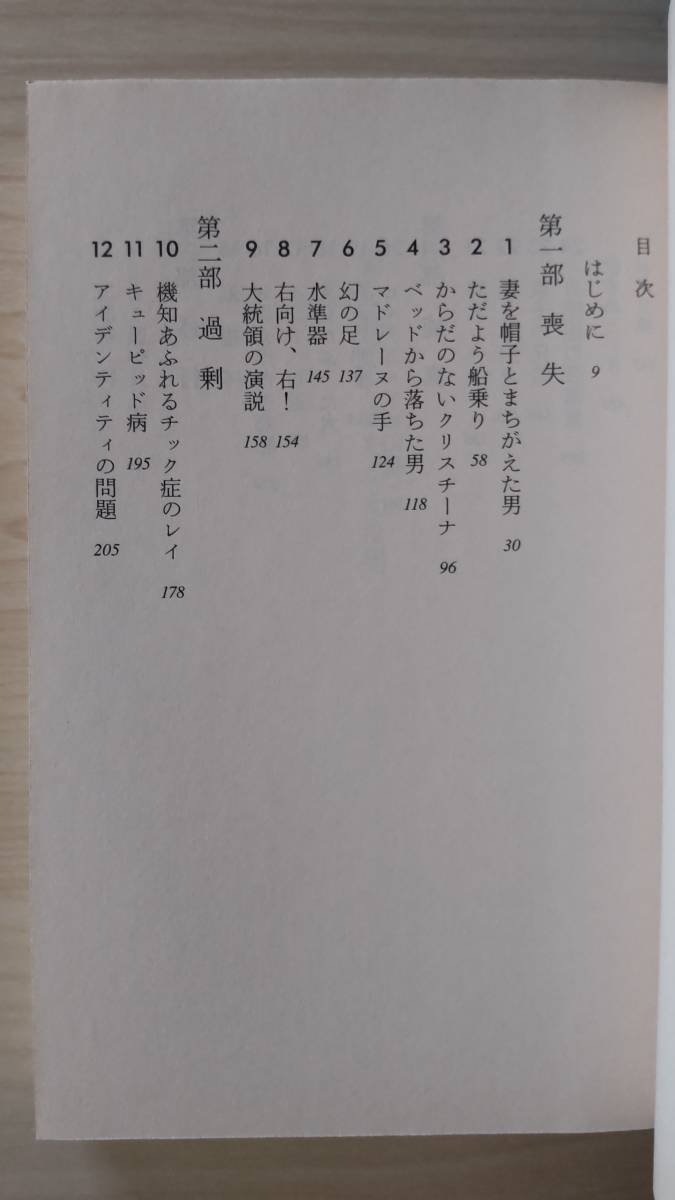 目次
はじめに 9
第一部 喪失
1 妻を帽子とまちがえた男 30
2 ただよう船乗り 58
3 からだのないクリスチーナ 96
4 ベッドから落ちた男 118
5 マドレーヌの手 124
6 幻の足 137
7 水準器 145
8 右向け、右！ 154
9 大統領の演説 158
第二部 過剰
10 機知あふれるチック症のレイ 178
11 キューピッド病 195
12 アイデンティティの問題 205